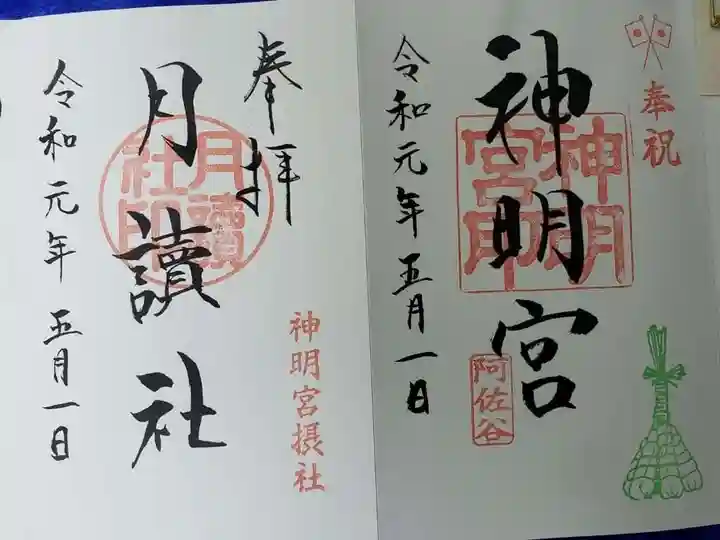 奉祝
神明宮
神明宮印
阿佐谷
令和元年五月一日
奉拝
神明宮摂社
月讀社
月讀社印
令和元年五月一日